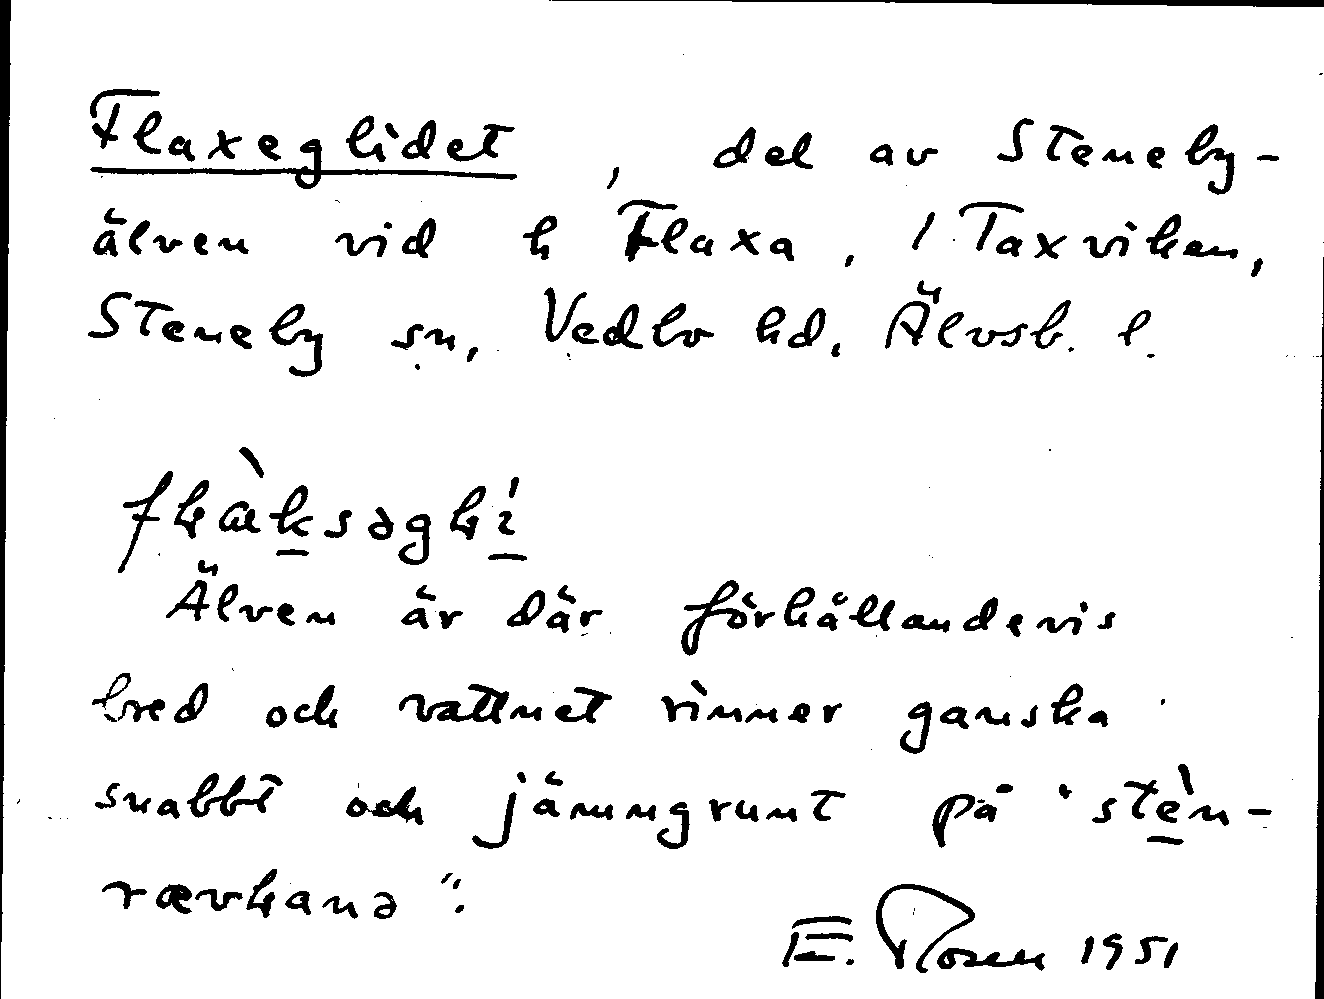 Flaxeglidet, del av Steneby-
älven vid h Flaxa, 1 Taxviken,
Steneby sn, Vedbo hd, Älvsb. l.
Älven är där förhållandevis
bred och vattnet rinner ganska
snabbt och jämngrunt på "stèn-
E. Rosen 1951